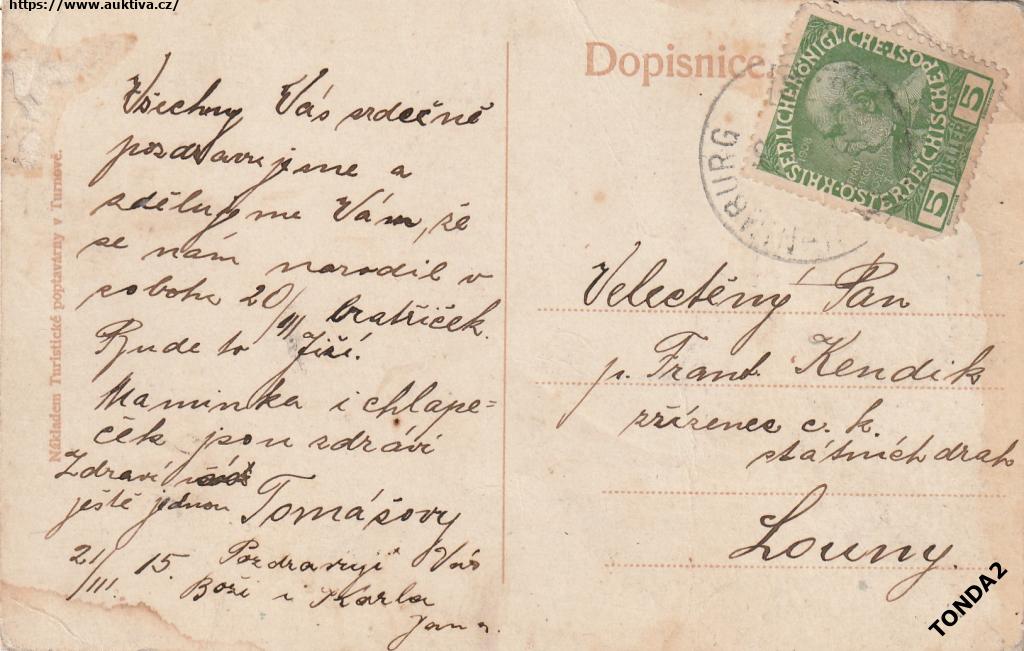 https://www.auktiva.cz/
Všechny Vás srdečně
pozdravujeme a
sdělujeme Vám, že
se nám narodil v
sobotu 20/III bratříček.
Bude to Jiří.
Maminka i chlape=
ček jsou zdrávi
Zdraví
ještě jednou Tomášovy
21/III. 15. Pozdravují Vás
Boži i Karla
Jana.
Nákladem Turistické poptavárny v Turnově.
Dopisnice.
KAISERLICHE KÖNIGLICHE ÖSTERREICHISCHE POST
5 HELLER 5
Velectěný Pán
p. Frant. Kendik
zřízenec c. k.
státních drah
Louny.
TONDA2